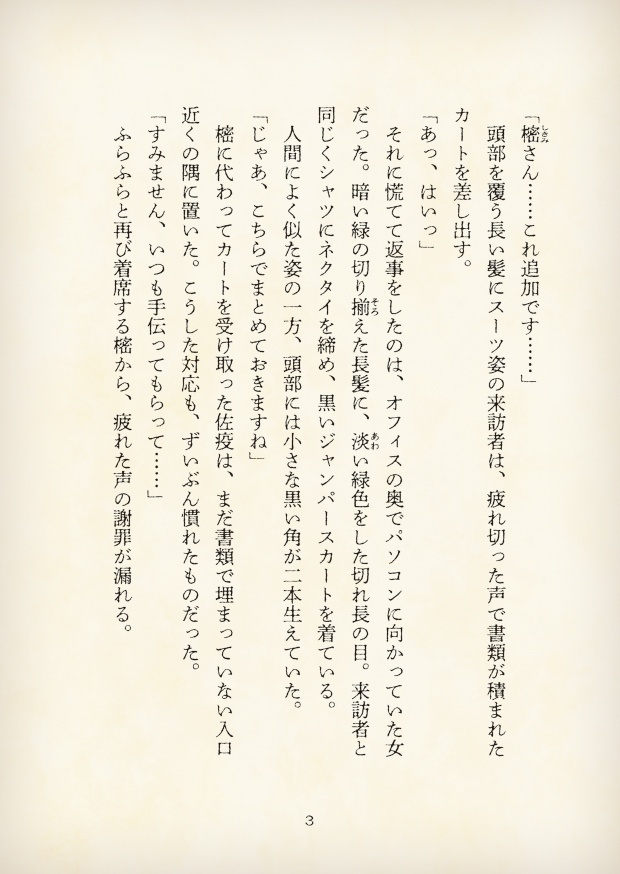 「樒さん……これ追加です……」
頭部を覆う長い髪にスーツ姿の来訪者は、疲れ切った声で書類が積まれた
カートを差し出す。
「あっ、はいっ」
それに慌てて返事をしたのは、オフィスの奥でパソコンに向かっていた女
だった。暗い緑の切り揃えた長髪に、淡い緑色をした切れ長の目。来訪者と
同じくシャツにネクタイを締め、黒いジャンパースカートを着ている。
人間によく似た姿の一方、頭部には小さな黒い角が二本生えていた。
「じゃあ、こちらでまとめておきますね」
樒に代わってカートを受け取った佐疫は、まだ書類で埋まっていない入口
近くの隅に置いた。こうした対応も、ずいぶん慣れたものだった。
「すみません、いつも手伝ってもらって……」
ふらふらと再び着席する樒から、疲れた声の謝罪が漏れる。
3